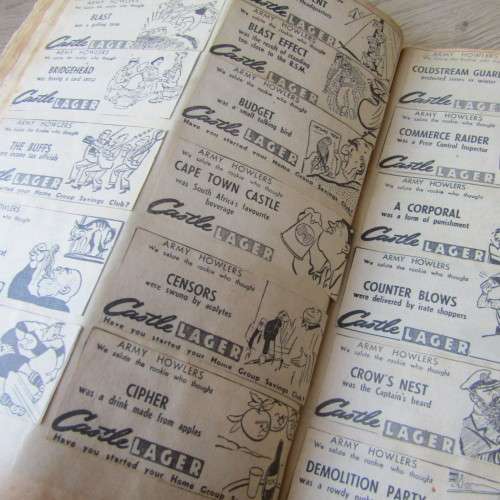 BLAST
was a golfing term
Castle LAGER
ARMY HOWLERS
We salute the rookie who thought
BRIDGEHEAD
was having a card sense
Castle LAGER
ARMY HOWLERS
We salute the rookie who thought
THE BUFFS
were income tax officials
Castle LAGER
Have you started your Home Group Savings Club?
HOWLERS
rookie who thought
LAGER
Castle LAGER
ARMY HOWLERS
We salute the rookie who thought
BLAST EFFECT
was the result of standing
too close to the R.S.M.
Castle LAGER
ARMY HOWLERS
We salute the rookie who thought
BUDGET
was a small talking bird
Castle LAGER
Have you started your Home Group Savings Club?
ARMY HOWLERS
We salute the rookie who thought
CAPE TOWN CASTLE
was South Africa's favourite
beverage
Castle LAGER
ARMY HOWLERS
We salute the rookie who thought
CENSORS
were swung by acolytes
Castle LAGER
Have you started your Home Group Savings Club?
ARMY HOWLERS
We salute the rookie who thought
CIPHER
was a drink made from apples
Castle LAGER
Have you started your Home Group Savings
ARMY HOWLERS
We salute the rookie who thought
COLDSTREAM GUARDS
protected
in winter
Castle LAGER
ARMY HOWLERS
We salute the rookie who thought
COMMERCE RAIDER
was a Price Control Inspector
Castle LAGER
ARMY HOWLERS
We salute the rookie who thought
A CORPORAL
was a form of punishment
Castle LAGER
ARMY HOWLERS
We salute the rookie who thought
COUNTER BLOWS
were delivered by irate shoppers
Castle LAGER
ARMY HOWLERS
We salute the rookie who thought
CROW'S NEST
was the Captain's beard
Castle LAGER
ARMY HOWLERS
We salute the rookie who thought
DEMOLITION PARTY
was a rowdy